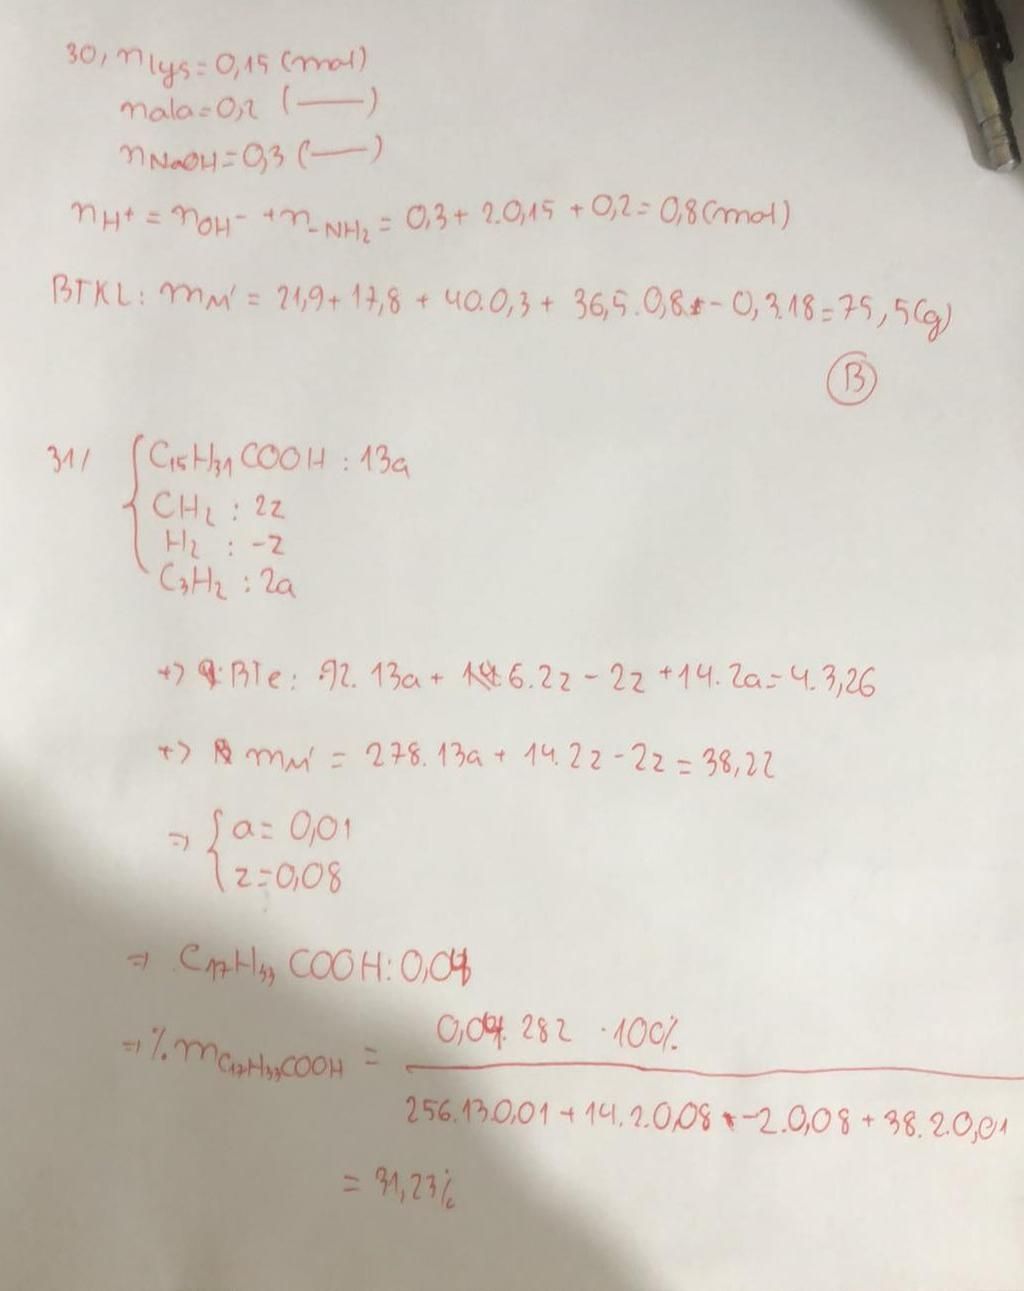 30, nlys = 0,15 (mol)
nala = 0,2 (——)
nNaOH = 0,3 (——)
nH+ = nOH- + n-NH2 = 0,3 + 2.0,15 + 0,2 = 0,8 (mol)
BTKL: mM' = 21,9 + 17,8 + 40.0,3 + 36,5.0,8 - 0,3.18 = 75,5(g)
B
31/ C15H31COOH : 13a
CH2 : 2z
H2 : -z
C3H2 : 2a
+) BTe: 92.13a + 6.2z - 2z + 14.2a = 4.3,26
+) mM' = 278.13a + 14.2z - 2z = 38,22
=> a = 0,01
z = 0,08
=> C17H33COOH: 0,04
=> %mC17H33COOH = 0,04.282 .100%
256.13.0,01 + 14.2.0,08 - 2.0,08 + 38.2.0,01
= 31,23%